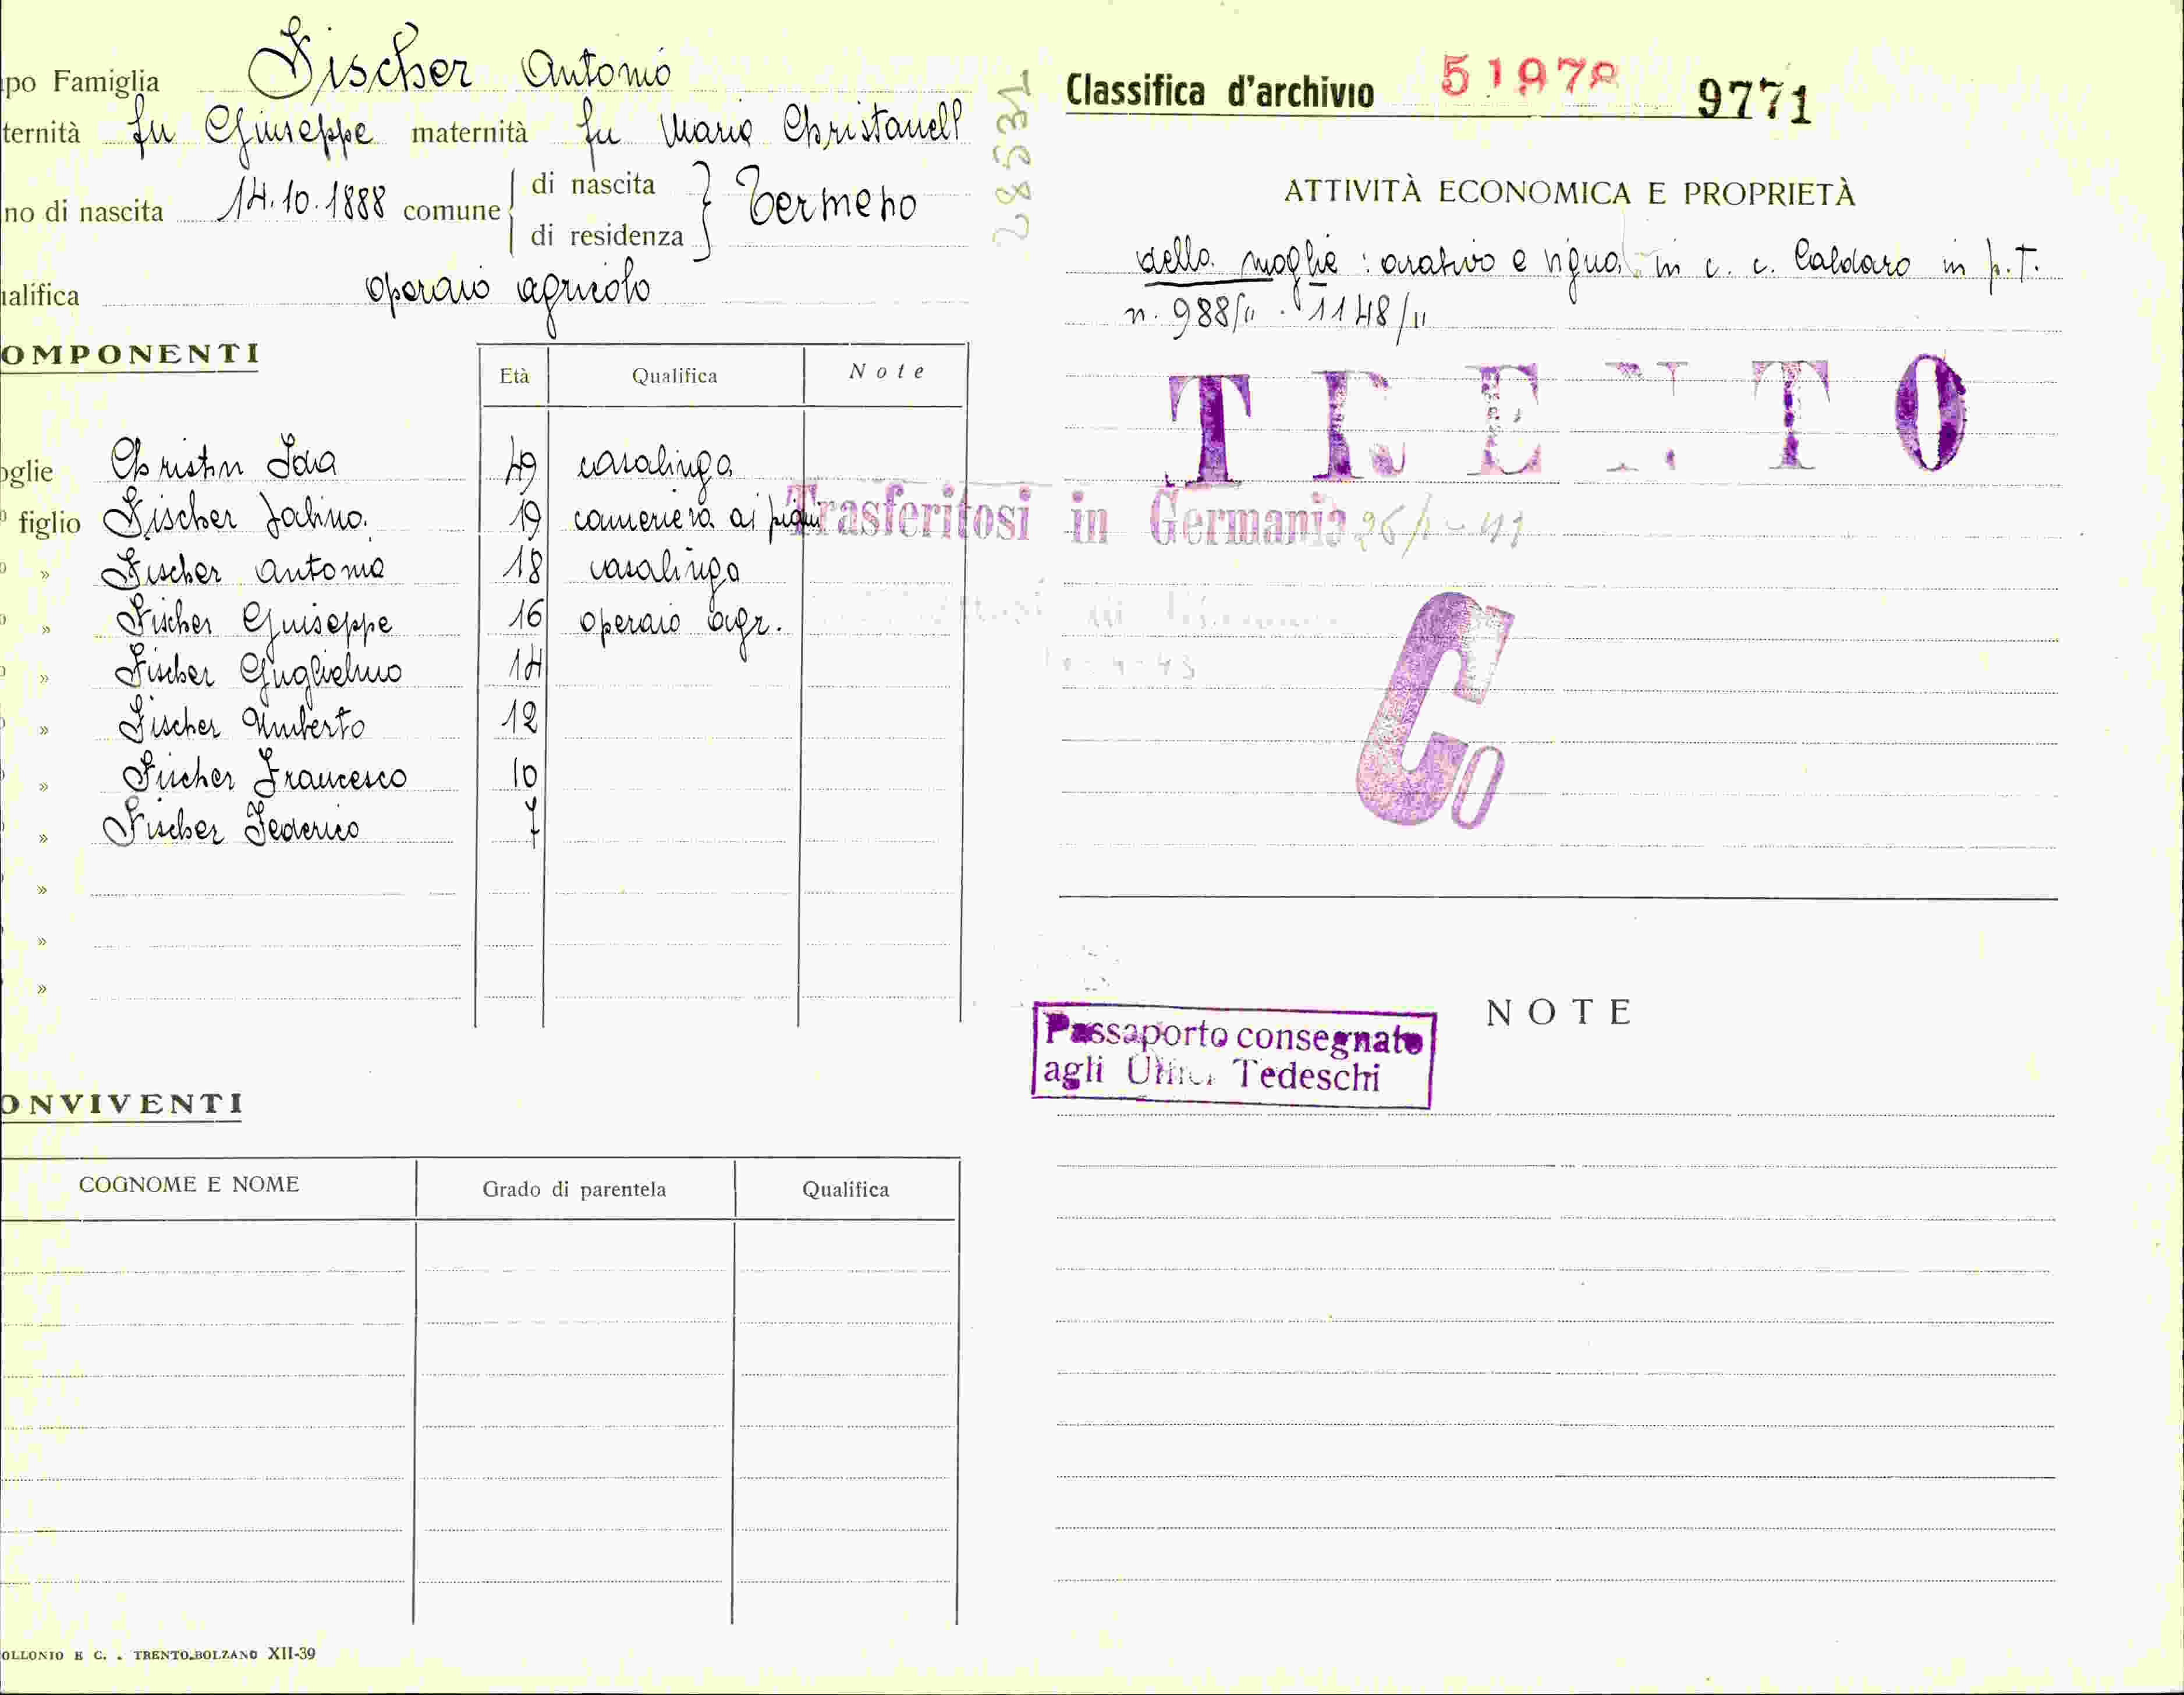 po Famiglia Fischer Antonio
ternità fu Giuseppe maternità fu Maria Christanell
no di nascita 14.10.1888 comune di nascita di residenza Termeno
alifica operaio agricolo
OMPONENTI
Età Qualifica Note
oglie Christin Ida 49 casalinga
figlio Fischer 19 cameriera ai piani
» Fischer Antonia 18 casalinga
» Fischer Giuseppe 16 operaio agr.
» Fischer Guglielmo 14
» Fischer Umberto 12
» Fischer Francesco 10
» Fischer Federico 7
»
»
»
ONVIVENTI
COGNOME E NOME Grado di parentela Qualifica
OLLONIO E C. . TRENTO-BOLZANO XII-39
285331
Classifica d'archivio 51978 9771
ATTIVITÀ ECONOMICA E PROPRIETÀ
della moglie : arativo e vigna in c. c. Caldaro in p.T.
n. 988/II - 1148/II
TRENTO
Trasferitosi in Germania 26/1-41
Co
NOTE
Passaporto consegnato
agli Uffici Tedeschi